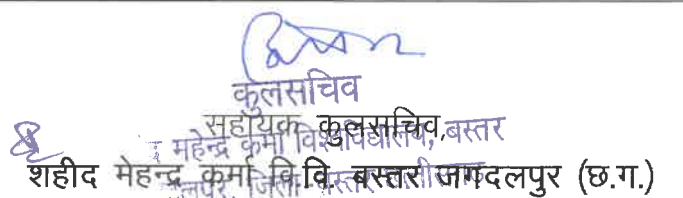 कुलसचिव
सहायक कुलसचिव,
महेन्द्र कर्मा विश्वविद्यालय, बस्तर
शहीद मेहन्द्र कर्मा वि.वि. बस्तर जगदलपुर (छ.ग.)